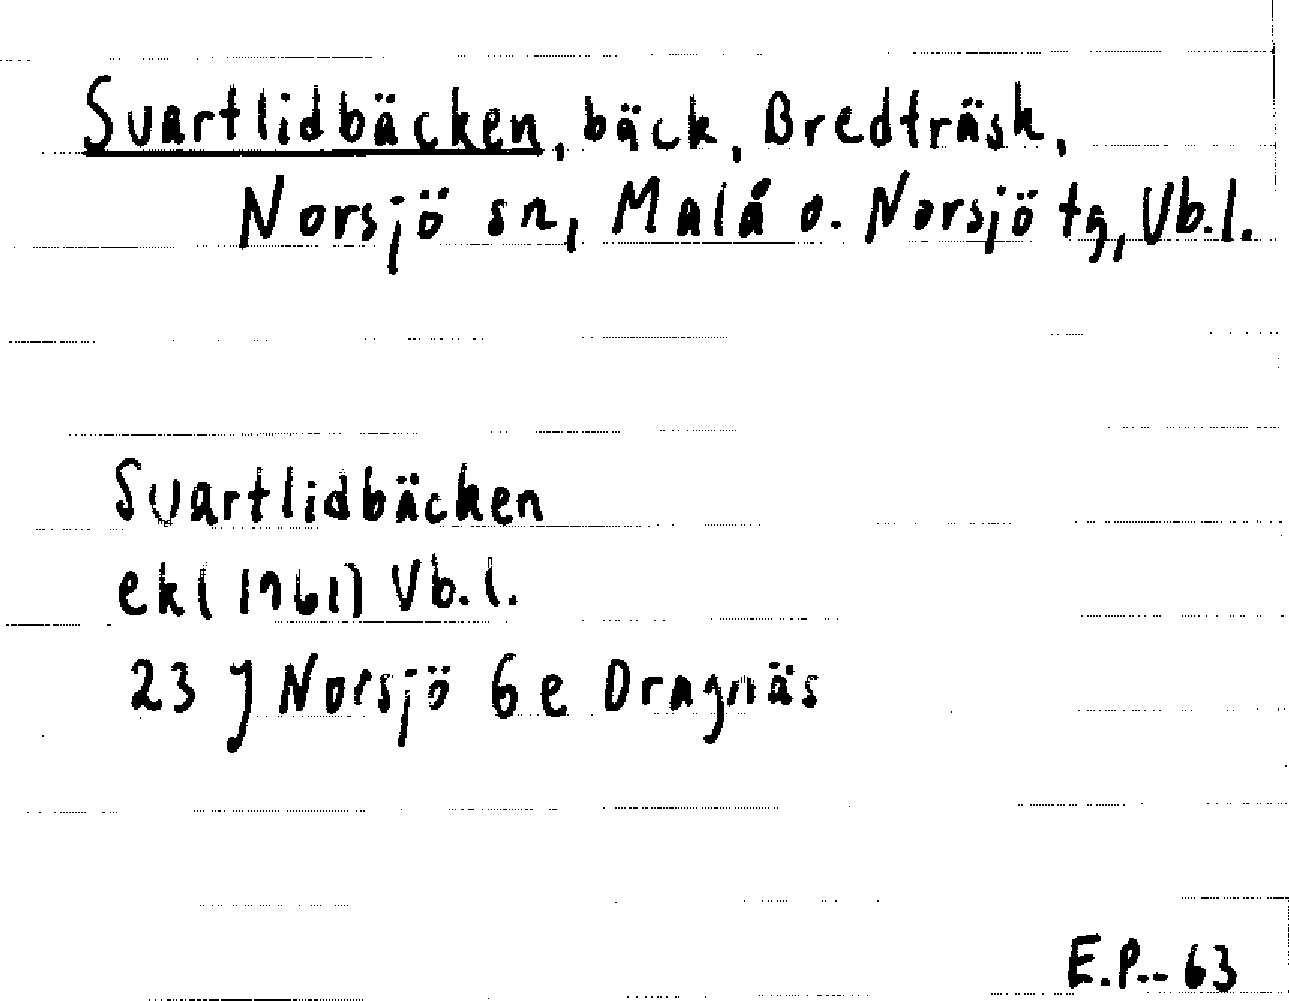 Svartlidbäcken, bäck, Bredträsk,
Norsjö sn, Malå o. Norsjö tg, Vb.l.
Svartlidbäcken
ek(1961) Vb.l.
23 J Norsjö 6e Dragnäs
E.P.-63